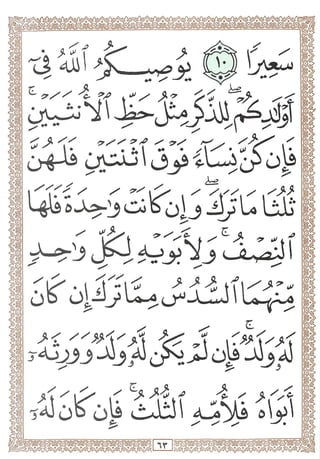 سَعِيرًا ١٠ يُوصِيكُمُ ٱللَّهُ فِىٓ
أَوْلَٰدِكُمْ ۖ لِلذَّكَرِ مِثْلُ حَظِّ ٱلْأُنثَيَيْنِ ۚ
فَإِن كُنَّ نِسَآءً فَوْقَ ٱثْنَتَيْنِ فَلَهُنَّ
ثُلُثَا مَا تَرَكَ ۖ وَإِن كَانَتْ وَٰحِدَةً فَلَهَا
ٱلنِّصْفُ ۚ وَلِأَبَوَيْهِ لِكُلِّ وَٰحِدٍ
مِّنْهُمَا ٱلسُّدُسُ مِمَّا تَرَكَ إِن كَانَ
لَهُۥ وَلَدٌ ۚ فَإِن لَّمْ يَكُن لَّهُۥ وَلَدٌ وَوَرِثَهُۥٓ
أَبَوَاهُ فَلِأُمِّهِ ٱلثُّلُثُ ۚ فَإِن كَانَ لَهُۥٓ
٦٣